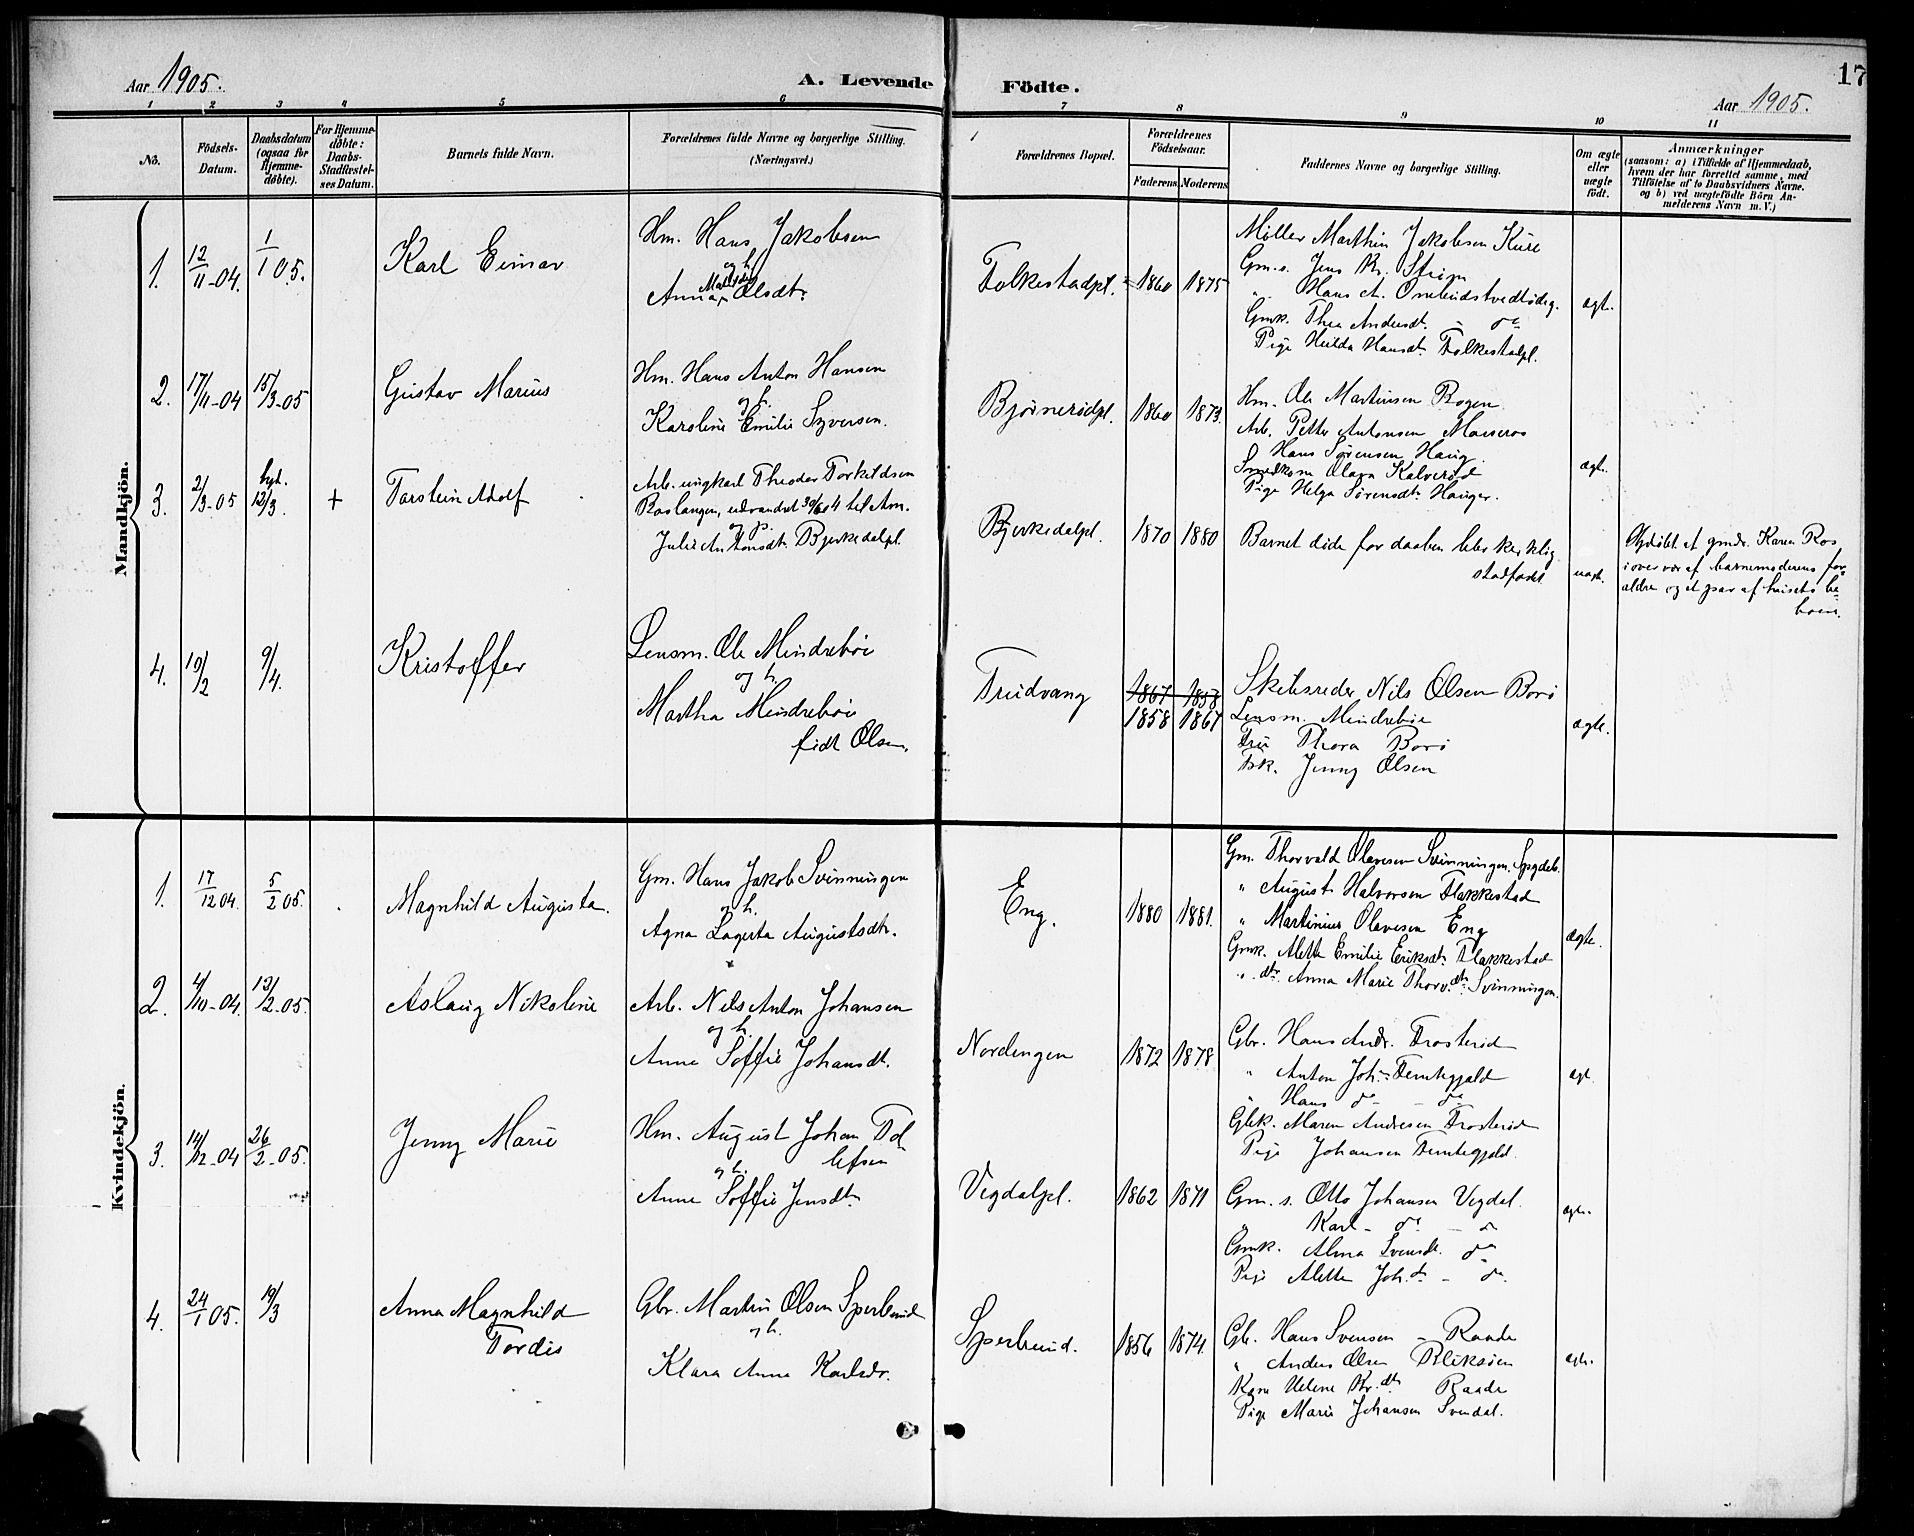 Aar 1905.
A. Levende Födte.
Aar 1905.
17
1 2 3 4 5 6 7 8 9 10 11
No.
Födsels-Datum.
Daabsdatum (ogsaa for Hjemme-døbte).
For Hjemme-døbte: Daabs-Stadfæstelses Datum.
Barnets fulde Navn.
Forældrenes fulde Navne og borgerlige Stilling.
(Næringsvei.)
Forældrenes Bopæl.
Forældrenes Födselsaar.
Faderens Moderens
Faddernes Navne og borgerlige Stilling.
Om ægte eller uægte födt.
Anmærkninger
(saasom: a) i Tilfælde af Hjemmedaab,
hvem der har forrettet samme, med
Tilföielse af to Daabsvidners Navne.
og b) ved uægtefödte Börn An-
melderens Navn m. V.)
Mandkjön.
1. 12/11-04. 1/1 05. Karl Einar
Hm. Hans Jakobsen
og h.
Anna Mathilde Olsdt.
Folkestadpl. 1860 1875
Møller Marthin Jakobsen Kure
Gm.s. Jens Kr. Strøm
" Hans A.
Gmk. Thea Andersdt. - do
Pige Hilda Hansdt. Folkestadpl.
ægt.
2. 17/11-04 15/3-05 Gustav Marius
Hm. Hans Anton Hansen
og h.
Karoline Emilie Syversen.
Bjørnerødpl. 1860 1873.
Hm. Ole Martinsen Rogen
Arb. Petter Antonsen Moseros
Hans Sørensen Haug.
Olava Kalverød
Pige Helga Sørensdt. Hauger.
ægt.
3. 2/3-05 hjd. 12/3. + Torstein Adolf
Arb. ungkarl Theodor Torkildsen
Roslangen, udvandret 30/6 04 til Am.
og p.
Julie Antonsdt. Bjerkedalpl.
Bjerkedalpl. 1870 1880
Barnet døde før daaben blev kirklig
stadfæst.
uægt.
Hjdøbt af gmdr. Karen Ros
i overvær af barnemoderens for-
ældre og et par af husets be-
boere.
4. 19/2 9/4. Kristoffer
Lensm. Ole Mindrebøe
og h.
Martha Mindrebøe
født Olsen.
Tridvang 1867 1858
1858 1867
Skibsreder Nils Olsen Borø
Lensm. Mindrebøe
Frue Thora Borø
Frk. Jenny Olsen
ægte.
Kvindekjön.
1. 17/12 04. 5/2 05. Magnhild Augusta.
Gm. Hans Jakob Svinningen
og h.
Agna Lagerta Augustsdtr.
Eng. 1880 1881.
Gm. Thorvald Olavesen Svinningen,
" August Halvorsen Flakkestad
" Martinius Olavesen Eng
Gmk. Alette Emilie Eriksdt. Flakkestad
" dtr. Anna Marie Thorv.dt. Svinningen.
ægte.
2. 4/10-04. 12/2-05. Aslaug Nikoline
Arb. Nils Anton Johansen
og h.
Anne Soffie Johansdt.
Nordengen 1872 1878
Gbr. Hans Andr. Frosterød
" Anton Joh. Femtegjeld
" Hans do - do
Gbk. Maren Andresen Frosterød
Pige Johansen Femtegjeld.
ægt.
3. 14/12-04 26/2-05. Jenny Marie
Hm. August Johan Tol
lefsen
og h.
Anne Soffie Jensdt.
Vegdalpl. 1862 1871
Gm. s. Otto Johansen Vegdal.
" Karl - do - do
Gmk. Alma Svensdt. do
Pige Alette Joh.dt. - do.
ægte.
4. 24/1 05. 19/3 Anna Magnhild
Tordis
Gbr. Martin Olsen Sperbund
og h.
Klara Anna Karlsdr.
Sperbund. 1856 1874.
Gb. Hans Svensen - Raade
" Anders Olsen Bliksøen
Kone Helene Kr.dt. Raade
Pige Marie Johansen Svendal.
ægte.